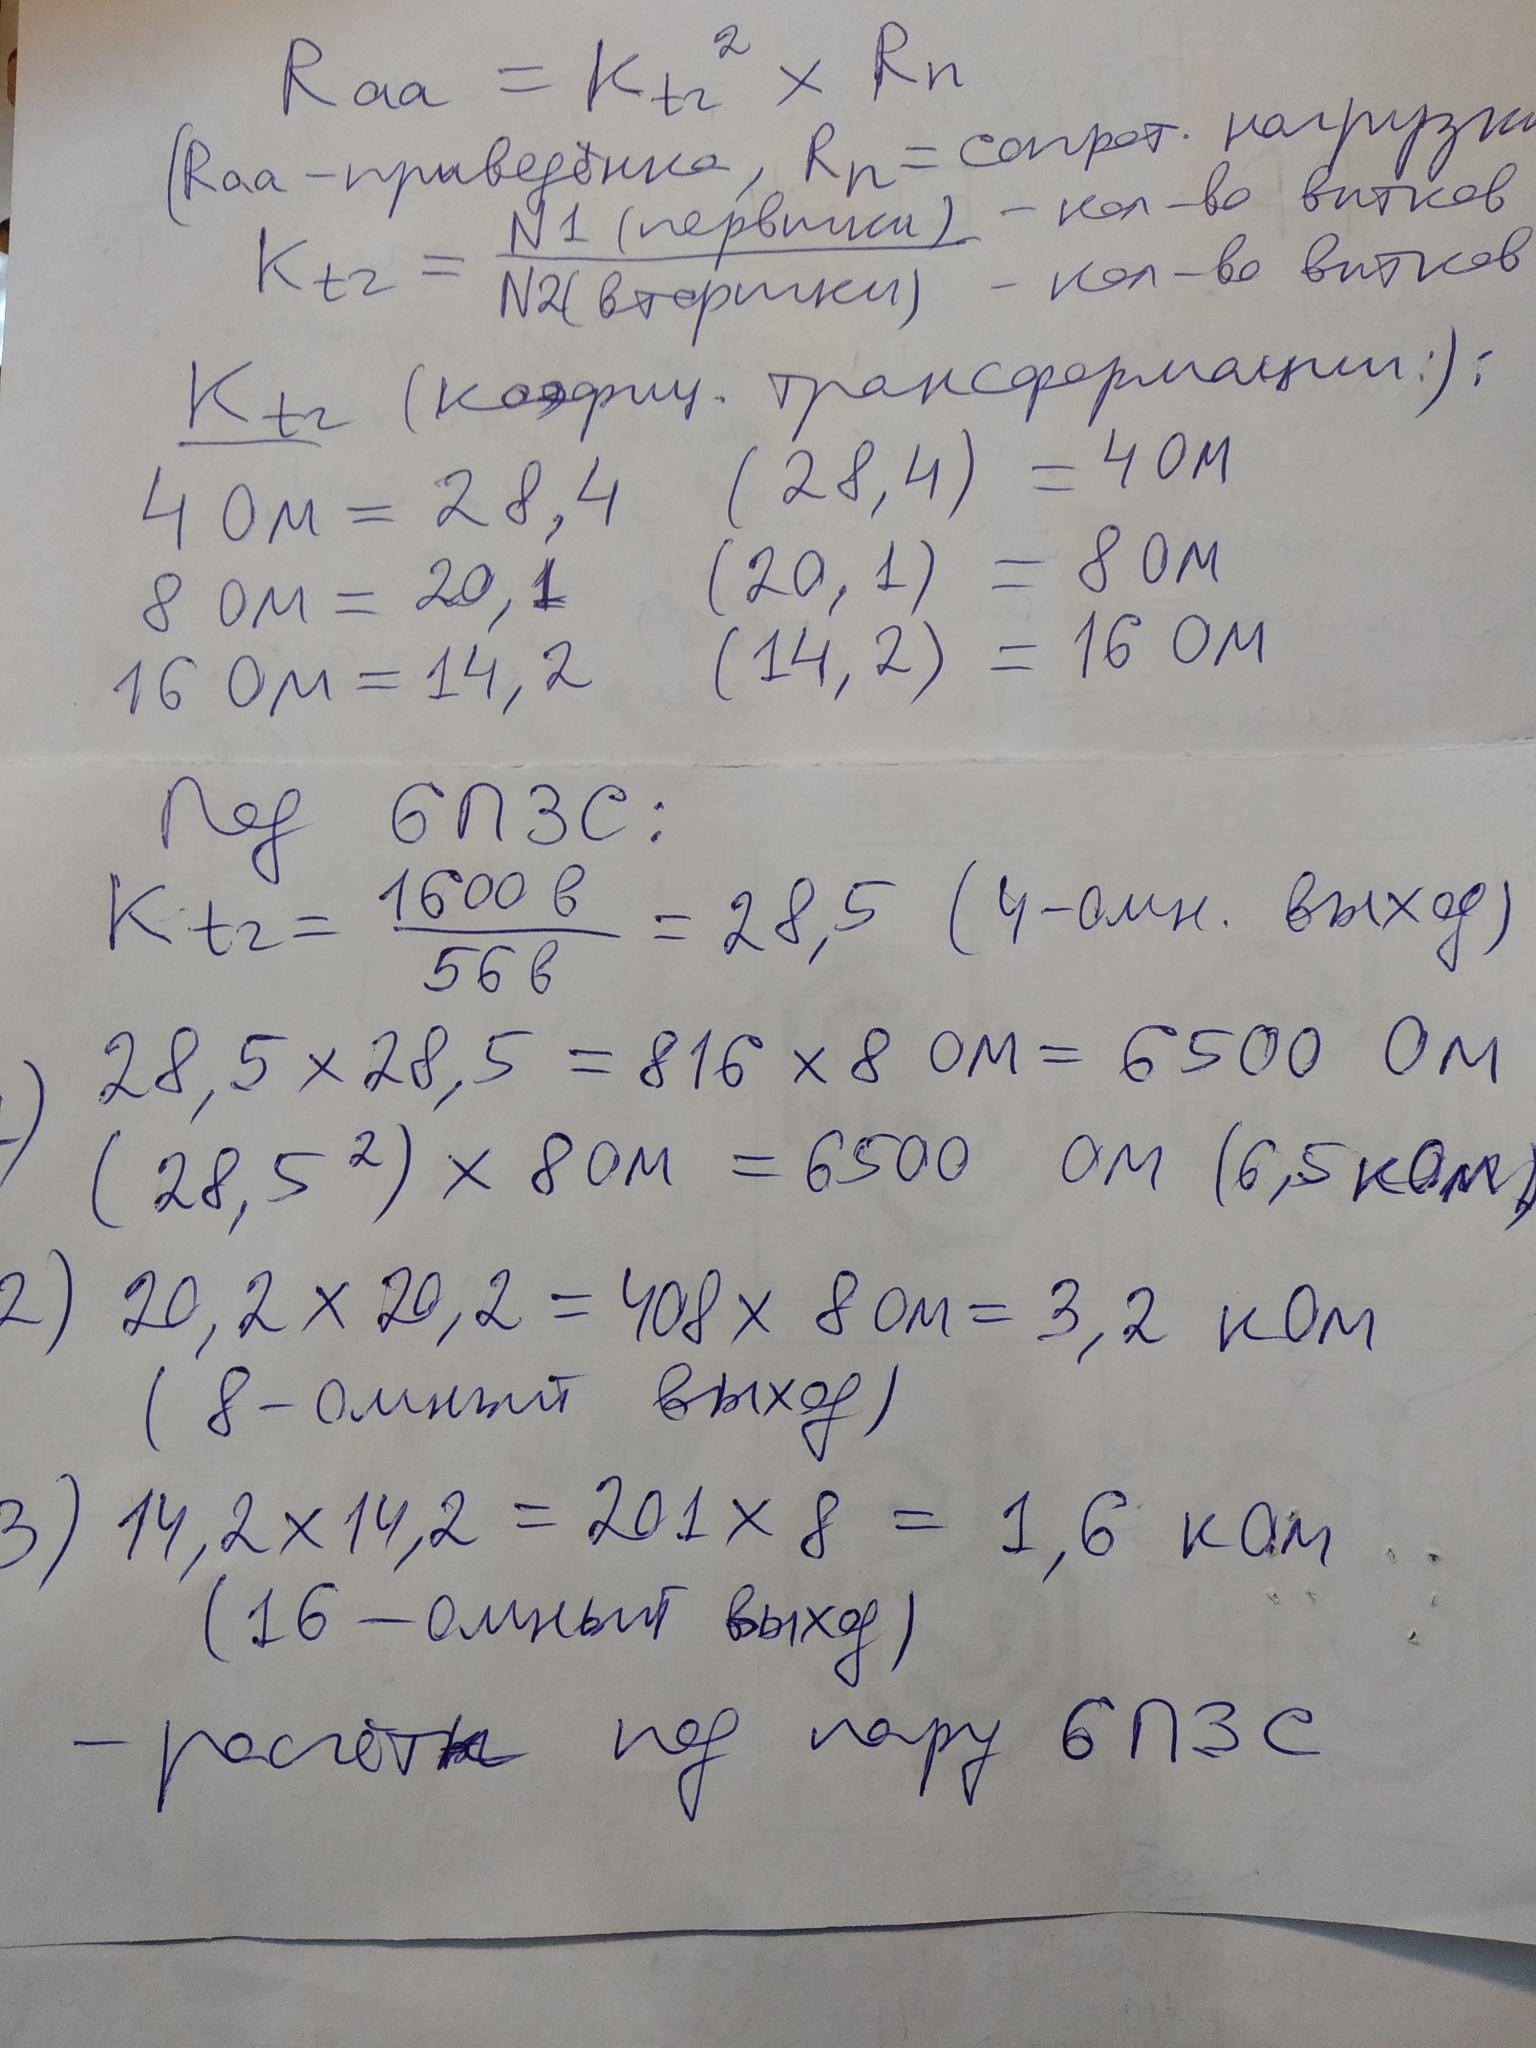 Raa = Ktr² x Rn
(Raa-приведёнка, Rn = сопрот. нагрузки
Ktr = N1 (первички) - кол-во витков
N2(вторички) - кол-во витков
Ktr (коэфиц. трансформации:):
4 Ом = 28,4 (28,4) = 4 Ом
8 Ом = 20,1 (20,1) = 8 Ом
16 Ом = 14,2 (14,2) = 16 Ом
Под 6П3С:
Ktr = 1600 в / 56 в = 28,5 (4-омн. выход)
1) 28,5 x 28,5 = 816 x 8 Ом = 6500 Ом
(28,5²) x 8 Ом = 6500 Ом (6,5 кОм)
2) 20,2 x 20,2 = 408 x 8 Ом = 3,2 кОм
(8-омный выход)
3) 14,2 x 14,2 = 201 x 8 = 1,6 кОм
(16-омный выход)
- расчёт под пару 6П3С